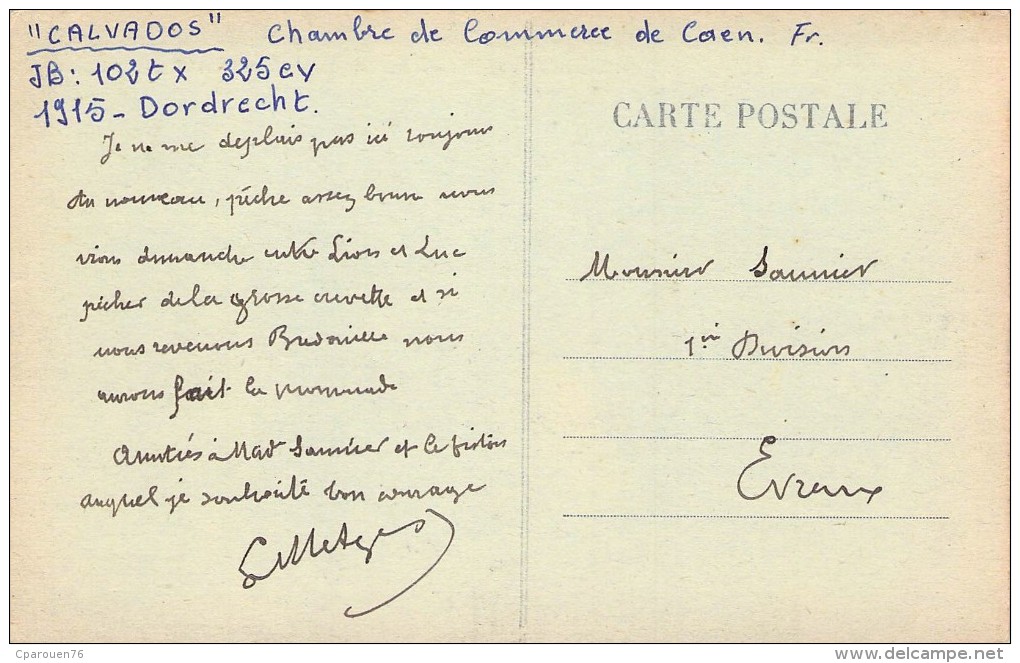 "CALVADOS" Chambre de Commerce de Caen. Fr.
JB: 102tx 325cv
1915 - Dordrecht.
CARTE POSTALE
Je ne me deplais pas ici toujours
du nouveau, pêche assez bonne nous
irons dimanche entre Lion et Luc
pêcher de la grosse crevette et si
nous revenons Bredouille nous
aurons fait la promenade
Amitiés à Mad Saunier et le fiston
auquel je souhaite bon courage
Monsieur Saunier
1ère Division
Evreux
Cparouen76
www.delcampe.net